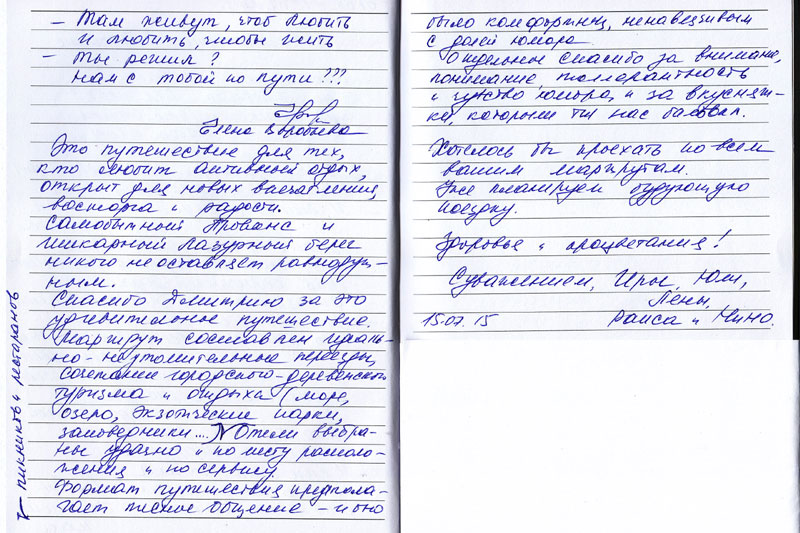 – Там живут, чтоб любить
и любить, чтобы жить
– Ты решил?
Нам с тобой по пути???
Елена Воробьева
Это путешествие для тех,
кто любит активный отдых,
открыт для новых впечатлений,
восторга и радости.
Самобытный Прованс и
шикарный Лазурный берег
никого не оставляет равнодуш-
ным.
Спасибо Дмитрию за это
удивительное путешествие.
Маршрут составлен идеаль-
но – не утомительные переезды,
сочетание городского-деревенского
туризма и отдыха (море,
озеро, экзотические парки,
заповедники.... Отели выбра-
ны удачно и по месту располо-
жения и по сервису.
Формат путешествия предпола-
гает тесное общение – и оно
← пикникты и ресторанов
было комфортным, ненавязчивым
с долей юмора.
Отдельное спасибо за внимание,
понимание, толлерантность
и чувство юмора, и за вкусняш-
ки, которыми ты нас баловал.
Хотелось бы проехать по всем
вашим маршрутам.
Уже планируем будующую
поездку.
Здоровья и процветания!
С уважением, Иры, Юли,
Лены,
15.07.15 Раиса и Нино.